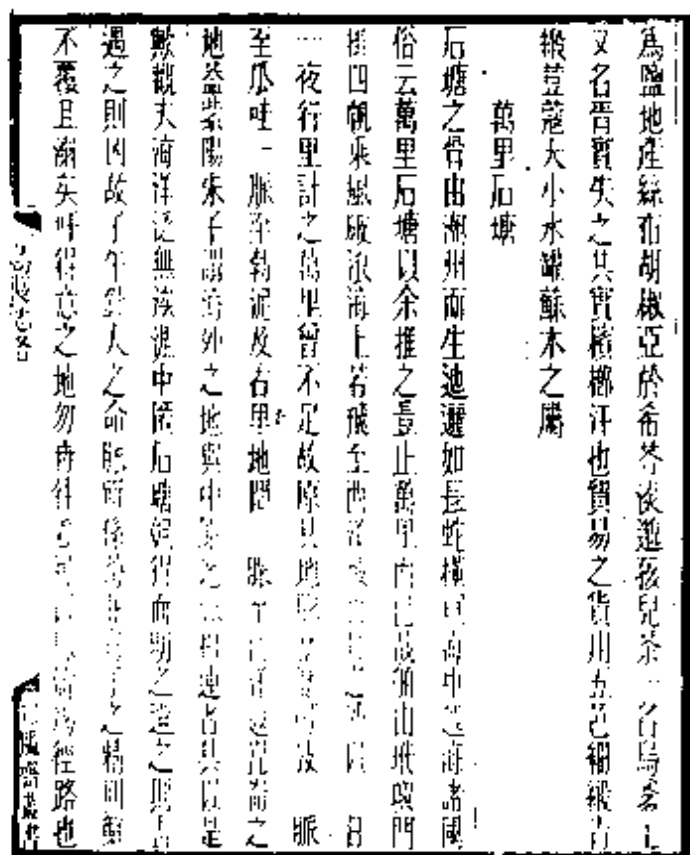 為鹽地產絲布胡椒亞於希苓淡邈孩兒茶一名烏爹土
又名胥實失之其實檳榔汁也貿易之貨用五色紬緞青
緞荳蔻大小水罐蘇木之屬
萬里石塘
石塘之骨由潮州而生迤邐如長蛇橫亘海中越海諸國
俗云萬里石塘以余推之豈止萬里而已哉舶由玳嶼門
掛四帆乘風破浪海上若飛至西洋或百日之外以一日
一夜行里計之萬里曾不足故源其地脈歷歷可考一脈
至爪哇一脈至勃泥及古里地悶一脈至西洋遐崑崙之
地蓋紫陽朱子謂海外之地與中原地脈相連者其以是
歟觀夫海洋泛無涘涯中匿石塘孰得而明之避之則吉
遇之則凶故子午針人之命脈所係苟非舟子之精明
不覆且溺矣吁得意之地勿再往豈可以風濤為徑路也